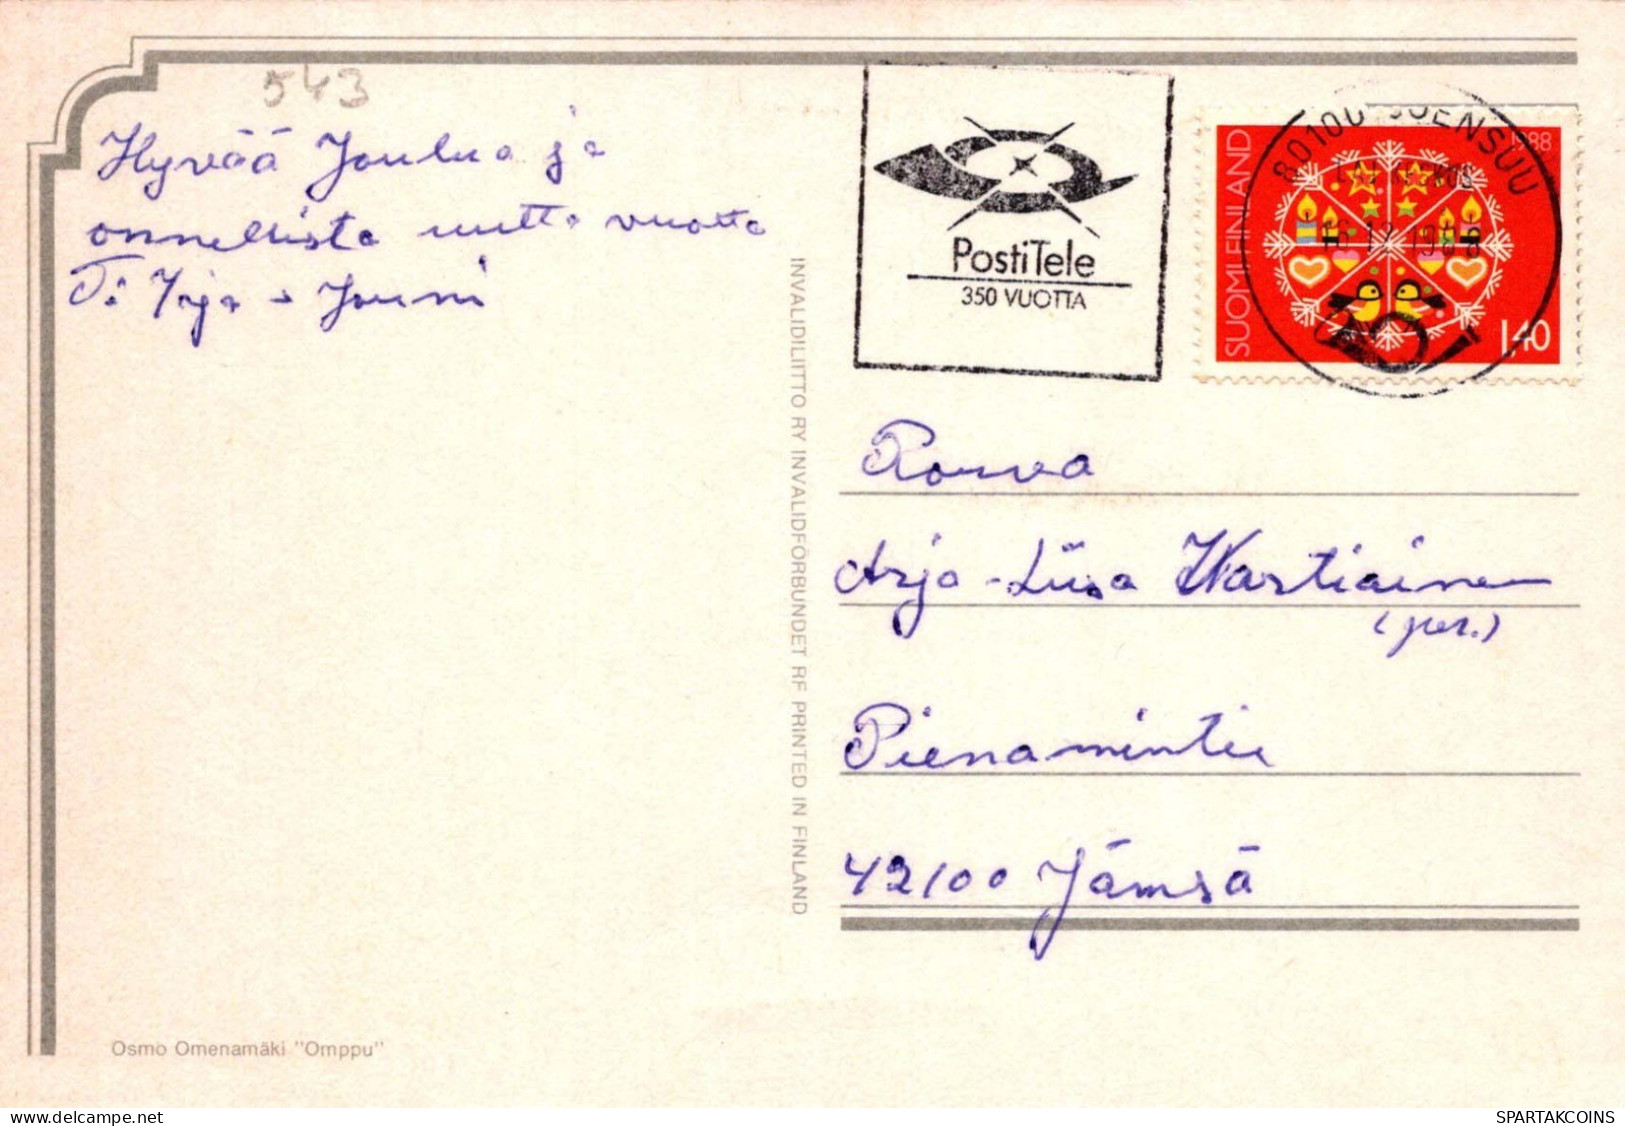 543
Hyvää Joulua ja
onnellista uutta vuotta
T: Irja - Jouni
Osmo Omenamäki "Omppu"
INVALIDILIITTO RY INVALIDFÖRBUNDET RF PRINTED IN FINLAND
PostiTele
350 VUOTTA
80100 JOENSUU
12.1988
SUOMI FINLAND
1988
1,40
Rouva
Arja-Liisa Wartiainen
(per.)
Pienamintie
42100 Jämsä
delcampe.net
SPARTAKCOINS